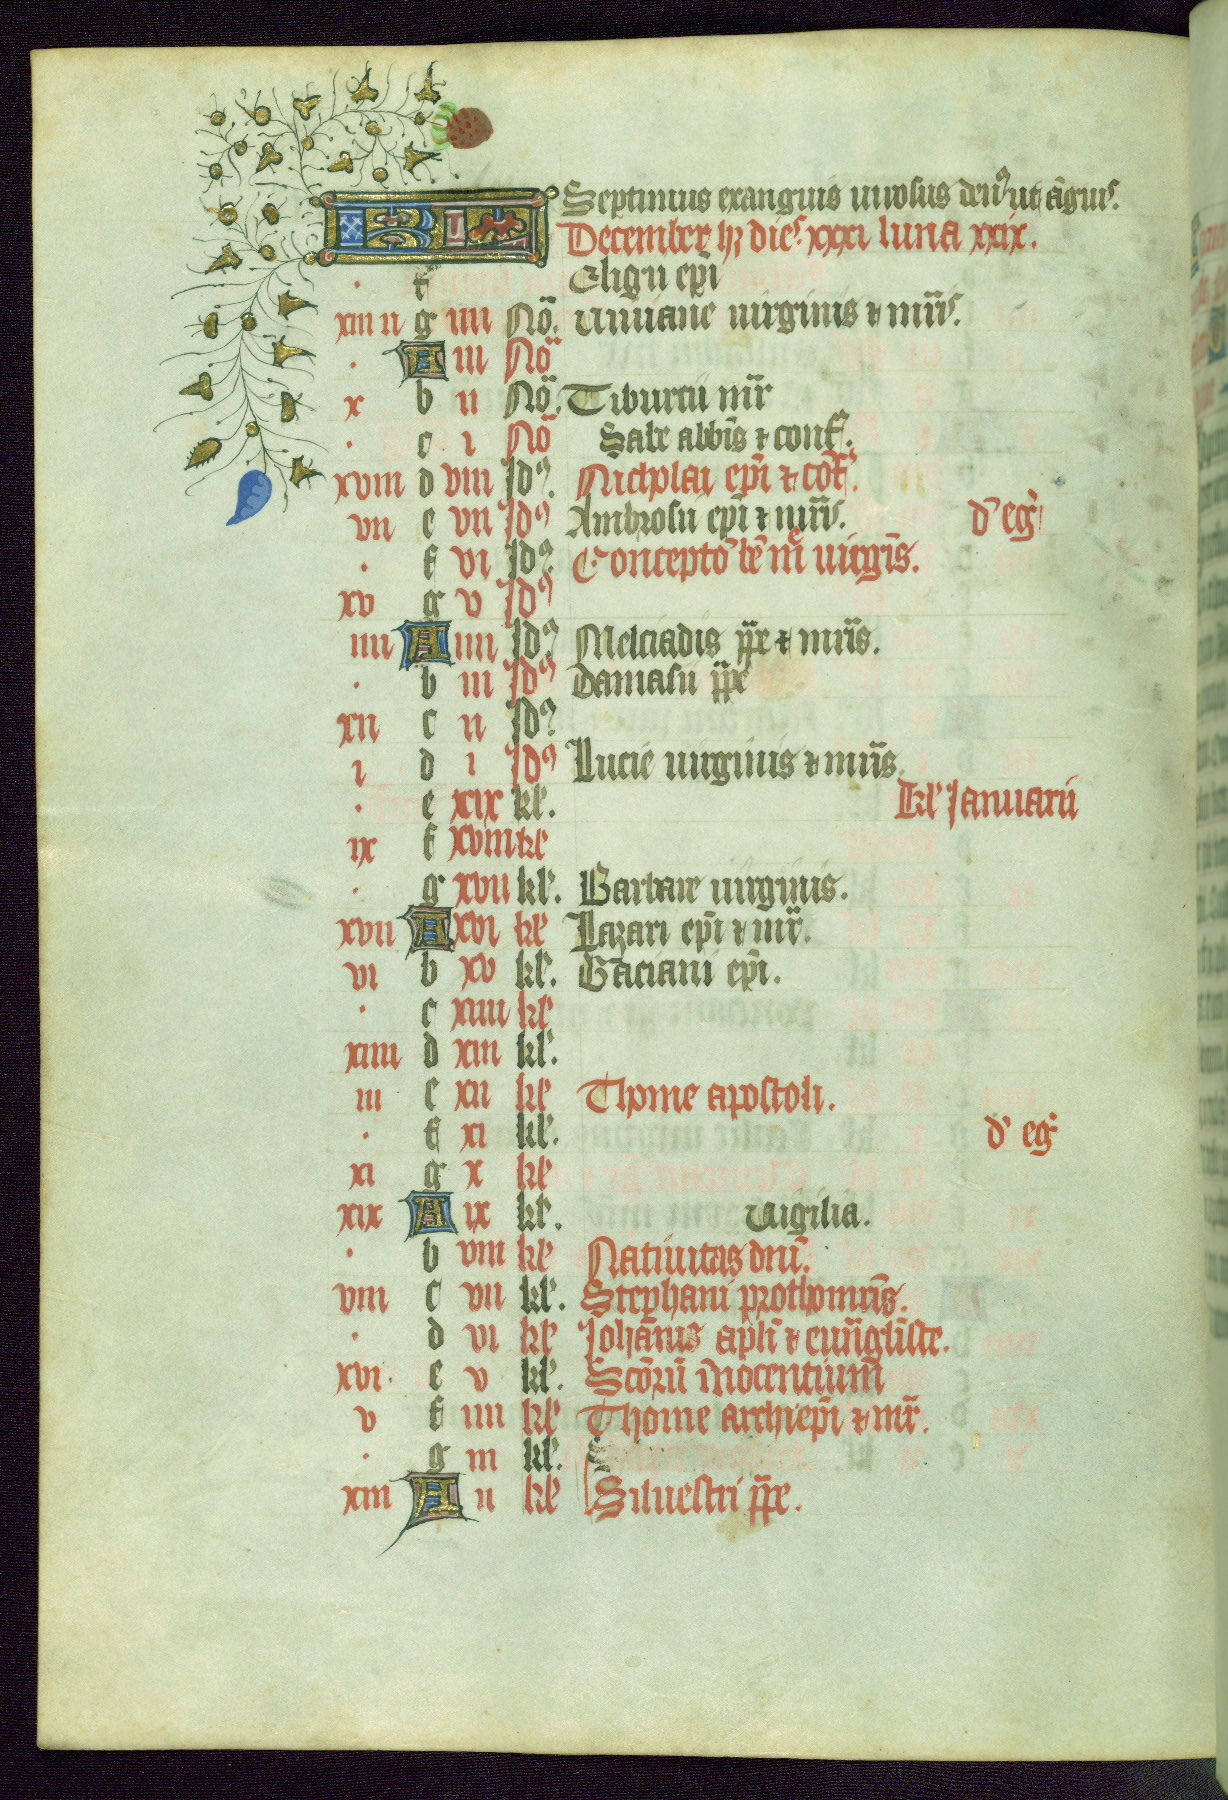 KL Septimus exanguis virosus den᷒ ut āguis.
December hȝ dies xxxi luna xxix.
. f Eligii epī
xiii ii g iiii Nō. Viviane virginis ⁊ mr̄is.
. A iii Nō
x b ii Nō. Tiburcii mr̄
. c i Nō Sabe abbīs ⁊ conf.
xviii d viii Idꝰ. Nicholai epī ⁊ cōf.
vii e vii Idꝰ Ambrosii epī ⁊ mr̄is. d' eg'
. f vi Idꝰ. Conceptō bē mē virgīs.
xv g v Idꝰ
iiii A iiii Idꝰ. Melciadis pp̄e ⁊ mr̄is.
. b iii Idꝰ Damasii pp̄e
xii c ii Idꝰ.
i d i Idꝰ Lucie virginis ⁊ mr̄is.
. e xix kl. kl Januarii
ix f xviii kl
. g xvii kl. Barbare virginis.
xvii A xvi kl Lazari epī ⁊ mr̄.
vi b xv kl. Gaciani epī.
. c xiiii kl
xiiii d xiii kl.
iii e xii kl Thome apostoli.
. f xi kl. d' eg'
xi g x kl
xix A ix kl. Vigilia.
. b viii kl Nativitas dnī.
viii c vii kl. Stephani prothomr̄is.
. d vi kl Johānis aplī ⁊ euāngliste.
xvi. e v kl. Scōrū inocentium
v f iiii kl Thome archiepī ⁊ mr̄.
. g iii kl.
xiii A ii kl Silvestri pp̄e.